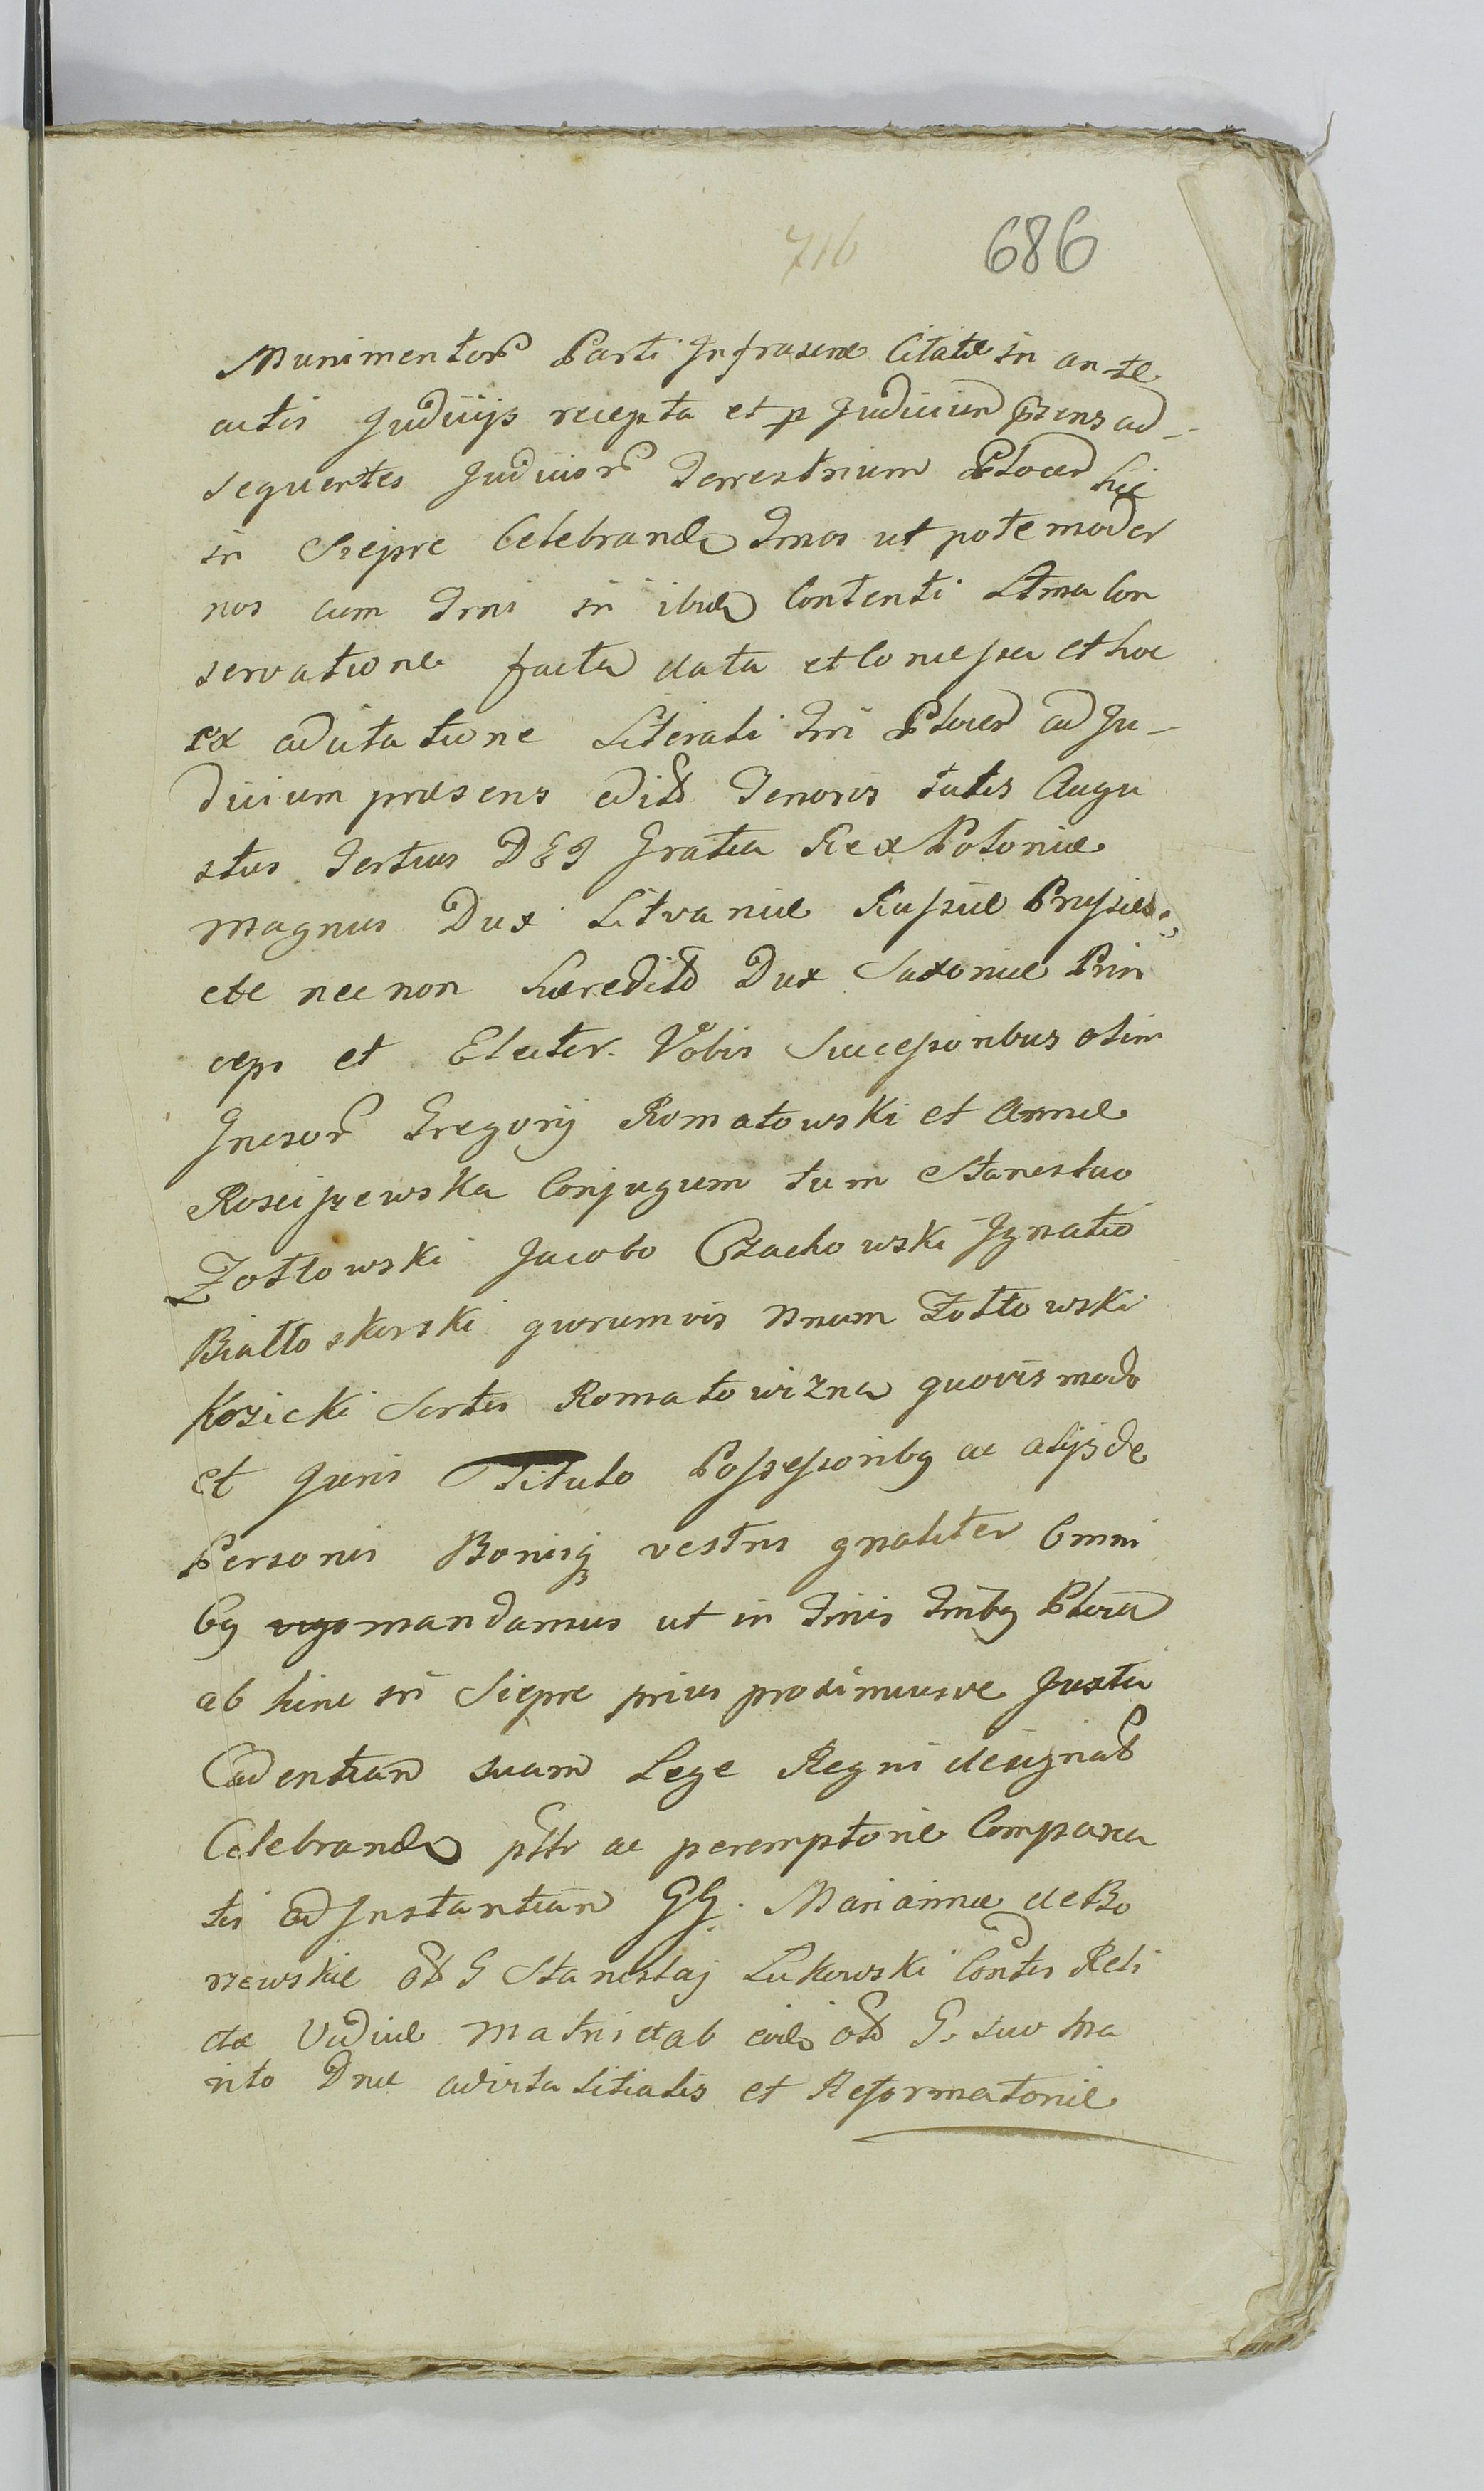 716 686
Munimentor Parti Infrascrae Citatae in ante
actis Judicijs recepta et p Judicium przens ad-
sequentes Judicior Terrestrium Plocen hic
in Sieprc Celebrand Tmos ut pote moder
nos cum Trni in ibid Contenti Ltma Con
servatione facta data et Concessa et hoc
ex adcitatione Literali Tri Plocen ad Ju-
dicium praesens edit Tenoris talis Augu
stus Tertius DEI Gratia Rex Poloniae
Magnus Dux Litvaniae Russiae Prussiae
etc nec non haeredit Dux Saxoniae Prin
ceps et Elector. Vobis Successoribus olim
Gnesor Gregorij Romatowski et Annae
Rosciszewska Conjugum tum Stanislao
Zołtowski Jacobo Czachowski Ignatio
Białłoskorski quorumvis Unum Zołtowski
Kozicki Sortis Romatowizna quovis modo
et Juris Titulo Possessoribq ac alijs de
Personis Bonisq vestris gnaliter Omni
bq mandamus ut in Tmis Tmibq Plocen
ab hinc in Siepre prius proximiusve Juxta
Cadentiam suam Lege Regni designat
Celebrand pttr ac peremptorie Compara
tis ad Instantiam GG. Mariannae de Bo
rzewskie olt G Stanislaj Lukowski Contis Reli
ctae Viduae Matris et ab eod olt G. suo Ma
rito Dnae advitalitialis et Reformatoriae